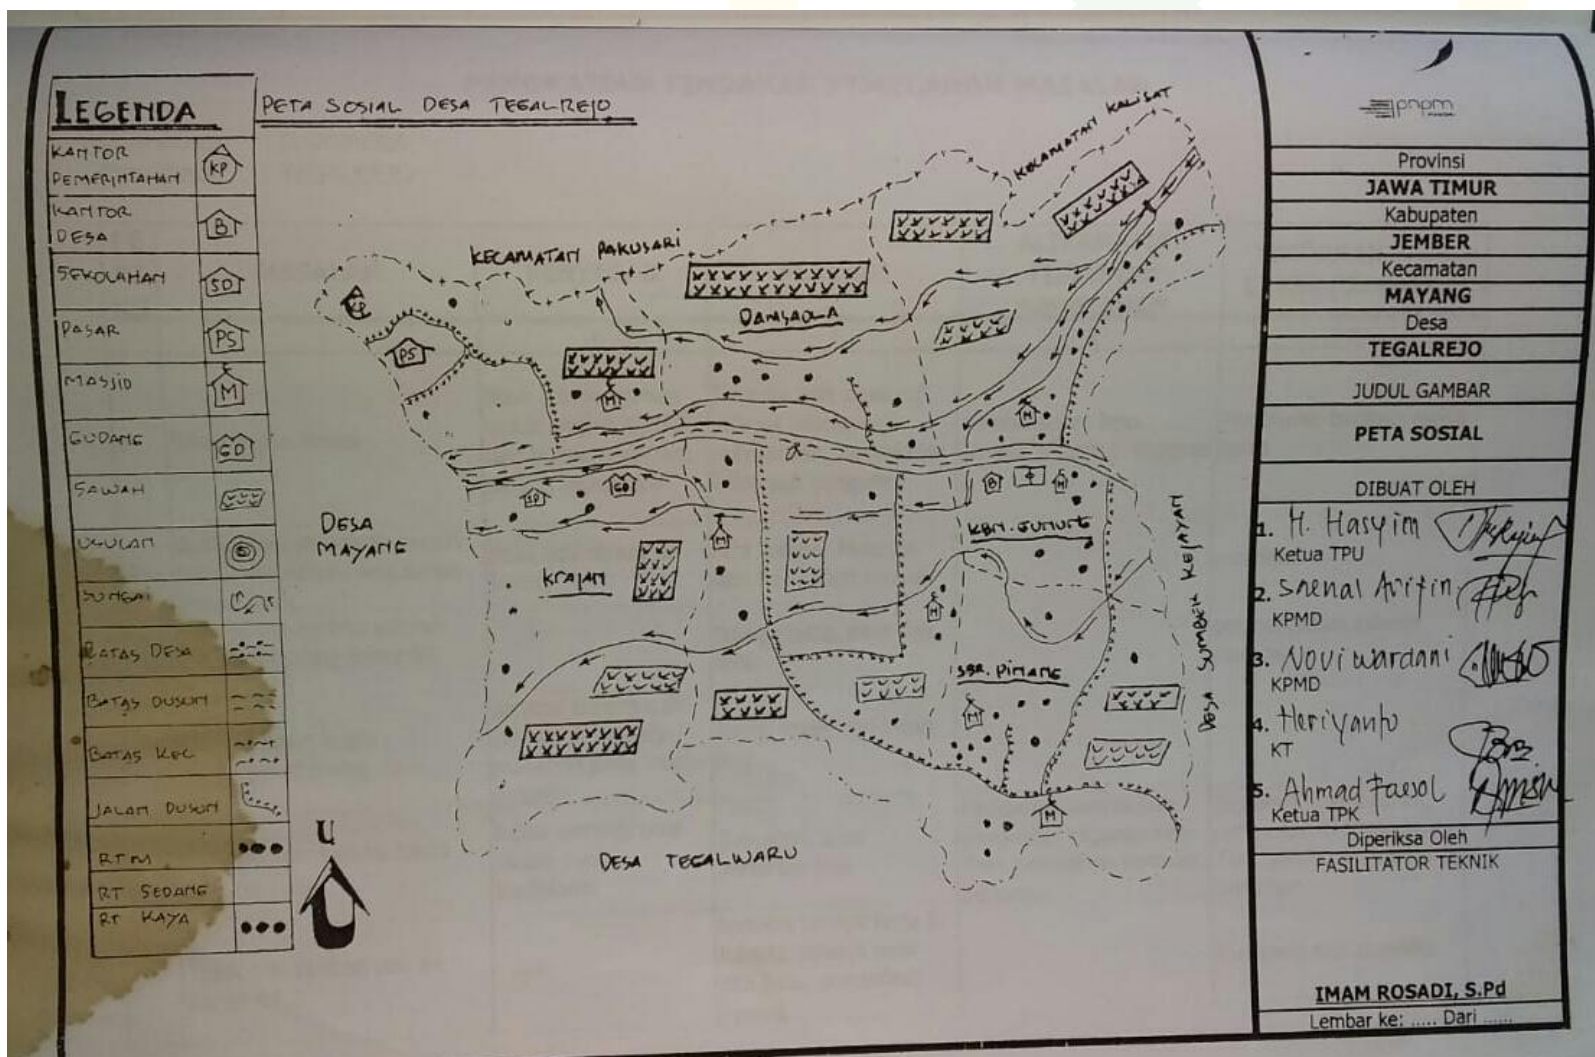 LEGENDA
PETA SOSIAL DESA TEGALREJO
KANTOR
PEMERINTAHAN
KP
KANTOR
DESA
B
SEKOLAHAN
SD
PASAR
PS
MASJID
M
GUDANG
GD
SAWAH
USULAN
SUNGAI
BATAS DESA
BATAS DUSUN
BATAS KEC
JALAN DUSUN
RTM
RT SEDANG
RT KAYA
U
KECAMATAN KALISAT
KECAMATAN PAKUSARI
KP
PS
M
M
SD
GD
B
M
DESA
MAYANG
M
KBN. GUNUNG
KRAJAN
M
SBR. PINANG
M
DESA SUMBER KEJAYAN
M
DESA TEGALWARU
pnpm
Provinsi
JAWA TIMUR
Kabupaten
JEMBER
Kecamatan
MAYANG
Desa
TEGALREJO
JUDUL GAMBAR
PETA SOSIAL
DIBUAT OLEH
1. H. Hasyim
Ketua TPU
2. Saenal Arifin
KPMD
3. Novi wardani
KPMD
4. Heriyanto
KT
5. Ahmad Faesol
Ketua TPK
Diperiksa Oleh
FASILITATOR TEKNIK
IMAM ROSADI, S.Pd
Lembar ke: ..... Dari ......